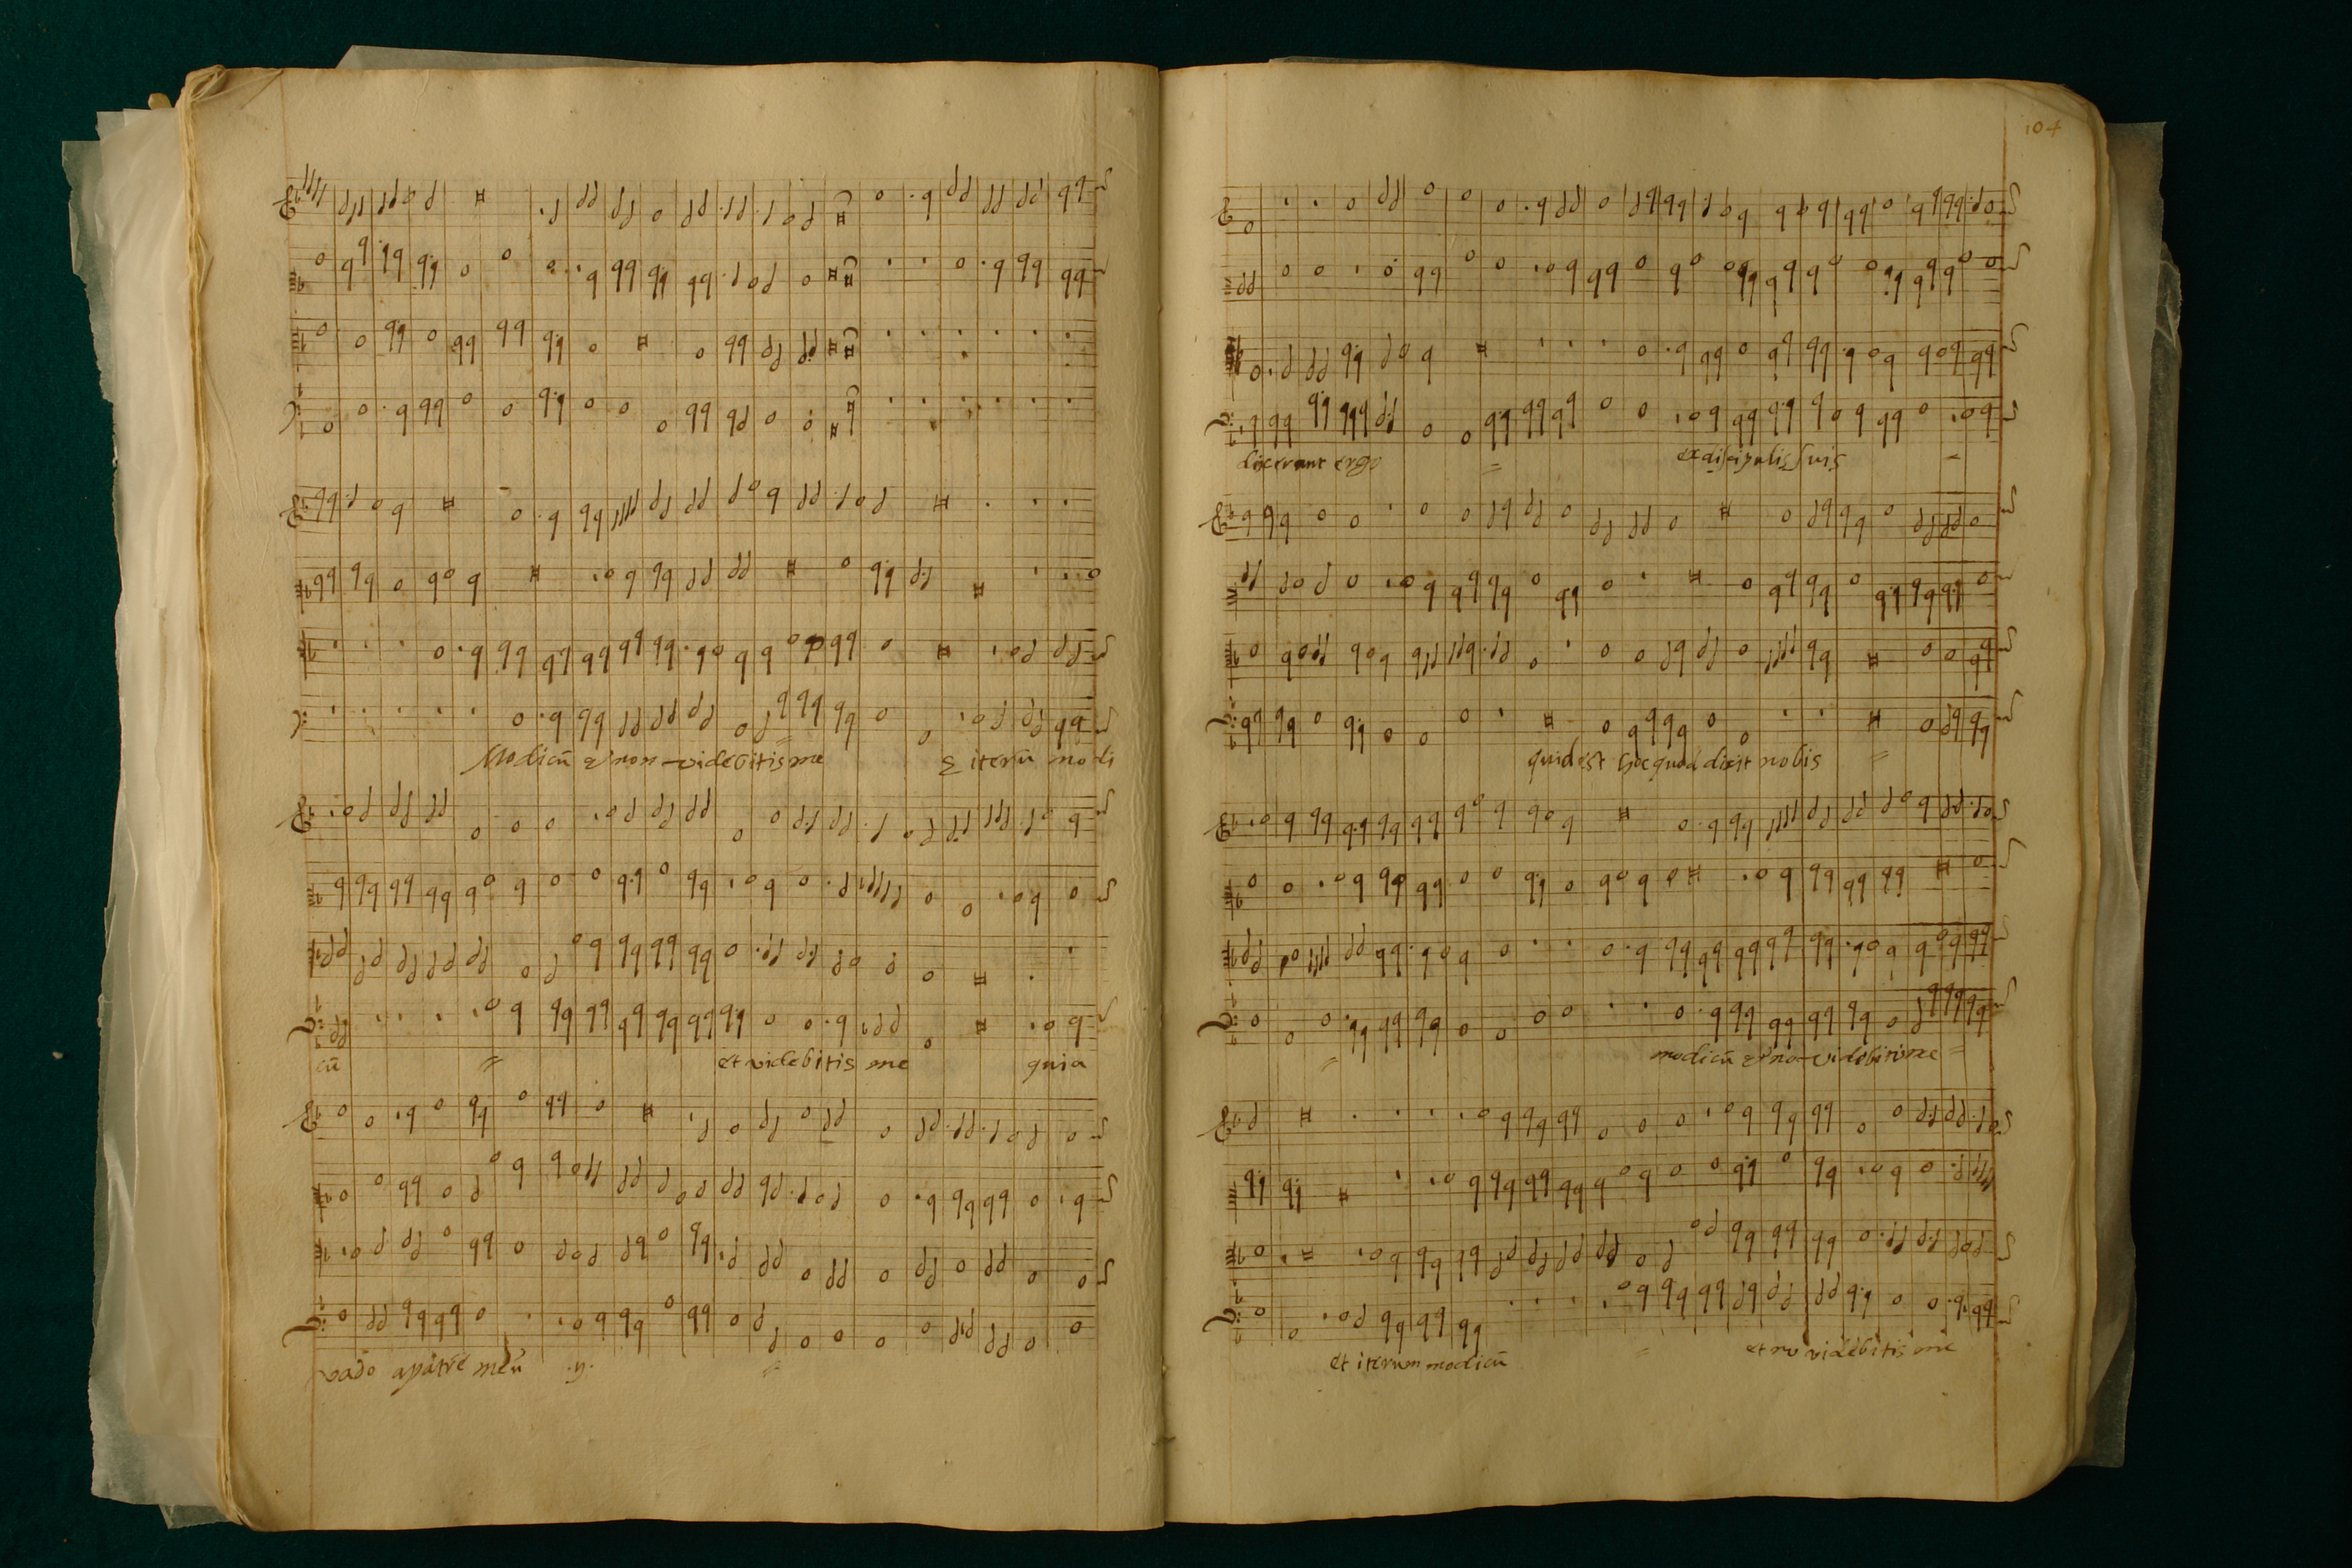 Modicũ & non videbitis me & iterũ modi
cũ = et videbitis me quia
vado apatrẽ meũ .ij. =
104
dixerunt ergo = ex discipulis suis
quid est hoc quod dicit nobis =
= modicũ & nõ videbitis me =
et iterum modicũ = videbitis me